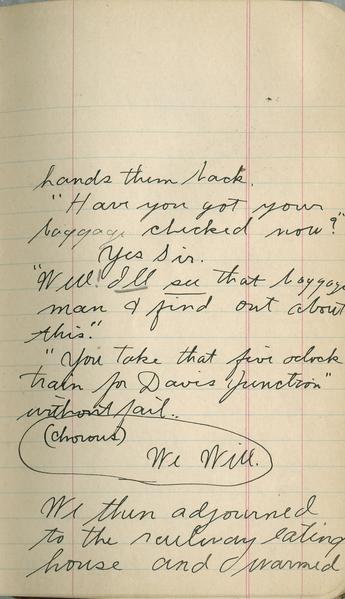 hands them back.
"Have you got your
baggage checked now?"
Yes Sir.
"Well! I'll see that baggage
man & find out about
this."
"You take that five oclock
train for Davis Junction"
without fail..
(chorous)
We Will.
We then adjourned
to the railway eating
house and warmed